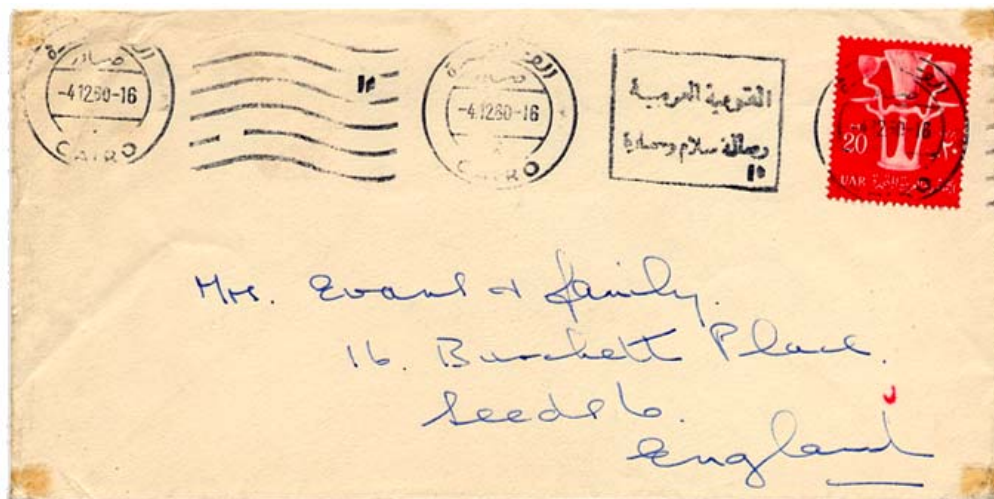 القاهرة
صادرة
-4.12.60-16
CAIRO
١٥
القاهرة
صادرة
-4.12.60-16
CAIRO
القومية العربية
رسالة سلام وحضارة
١٥
20 ٢٠
UAR
Mrs. Evans & family.
16. Burchett Place.
Leeds 6.
England